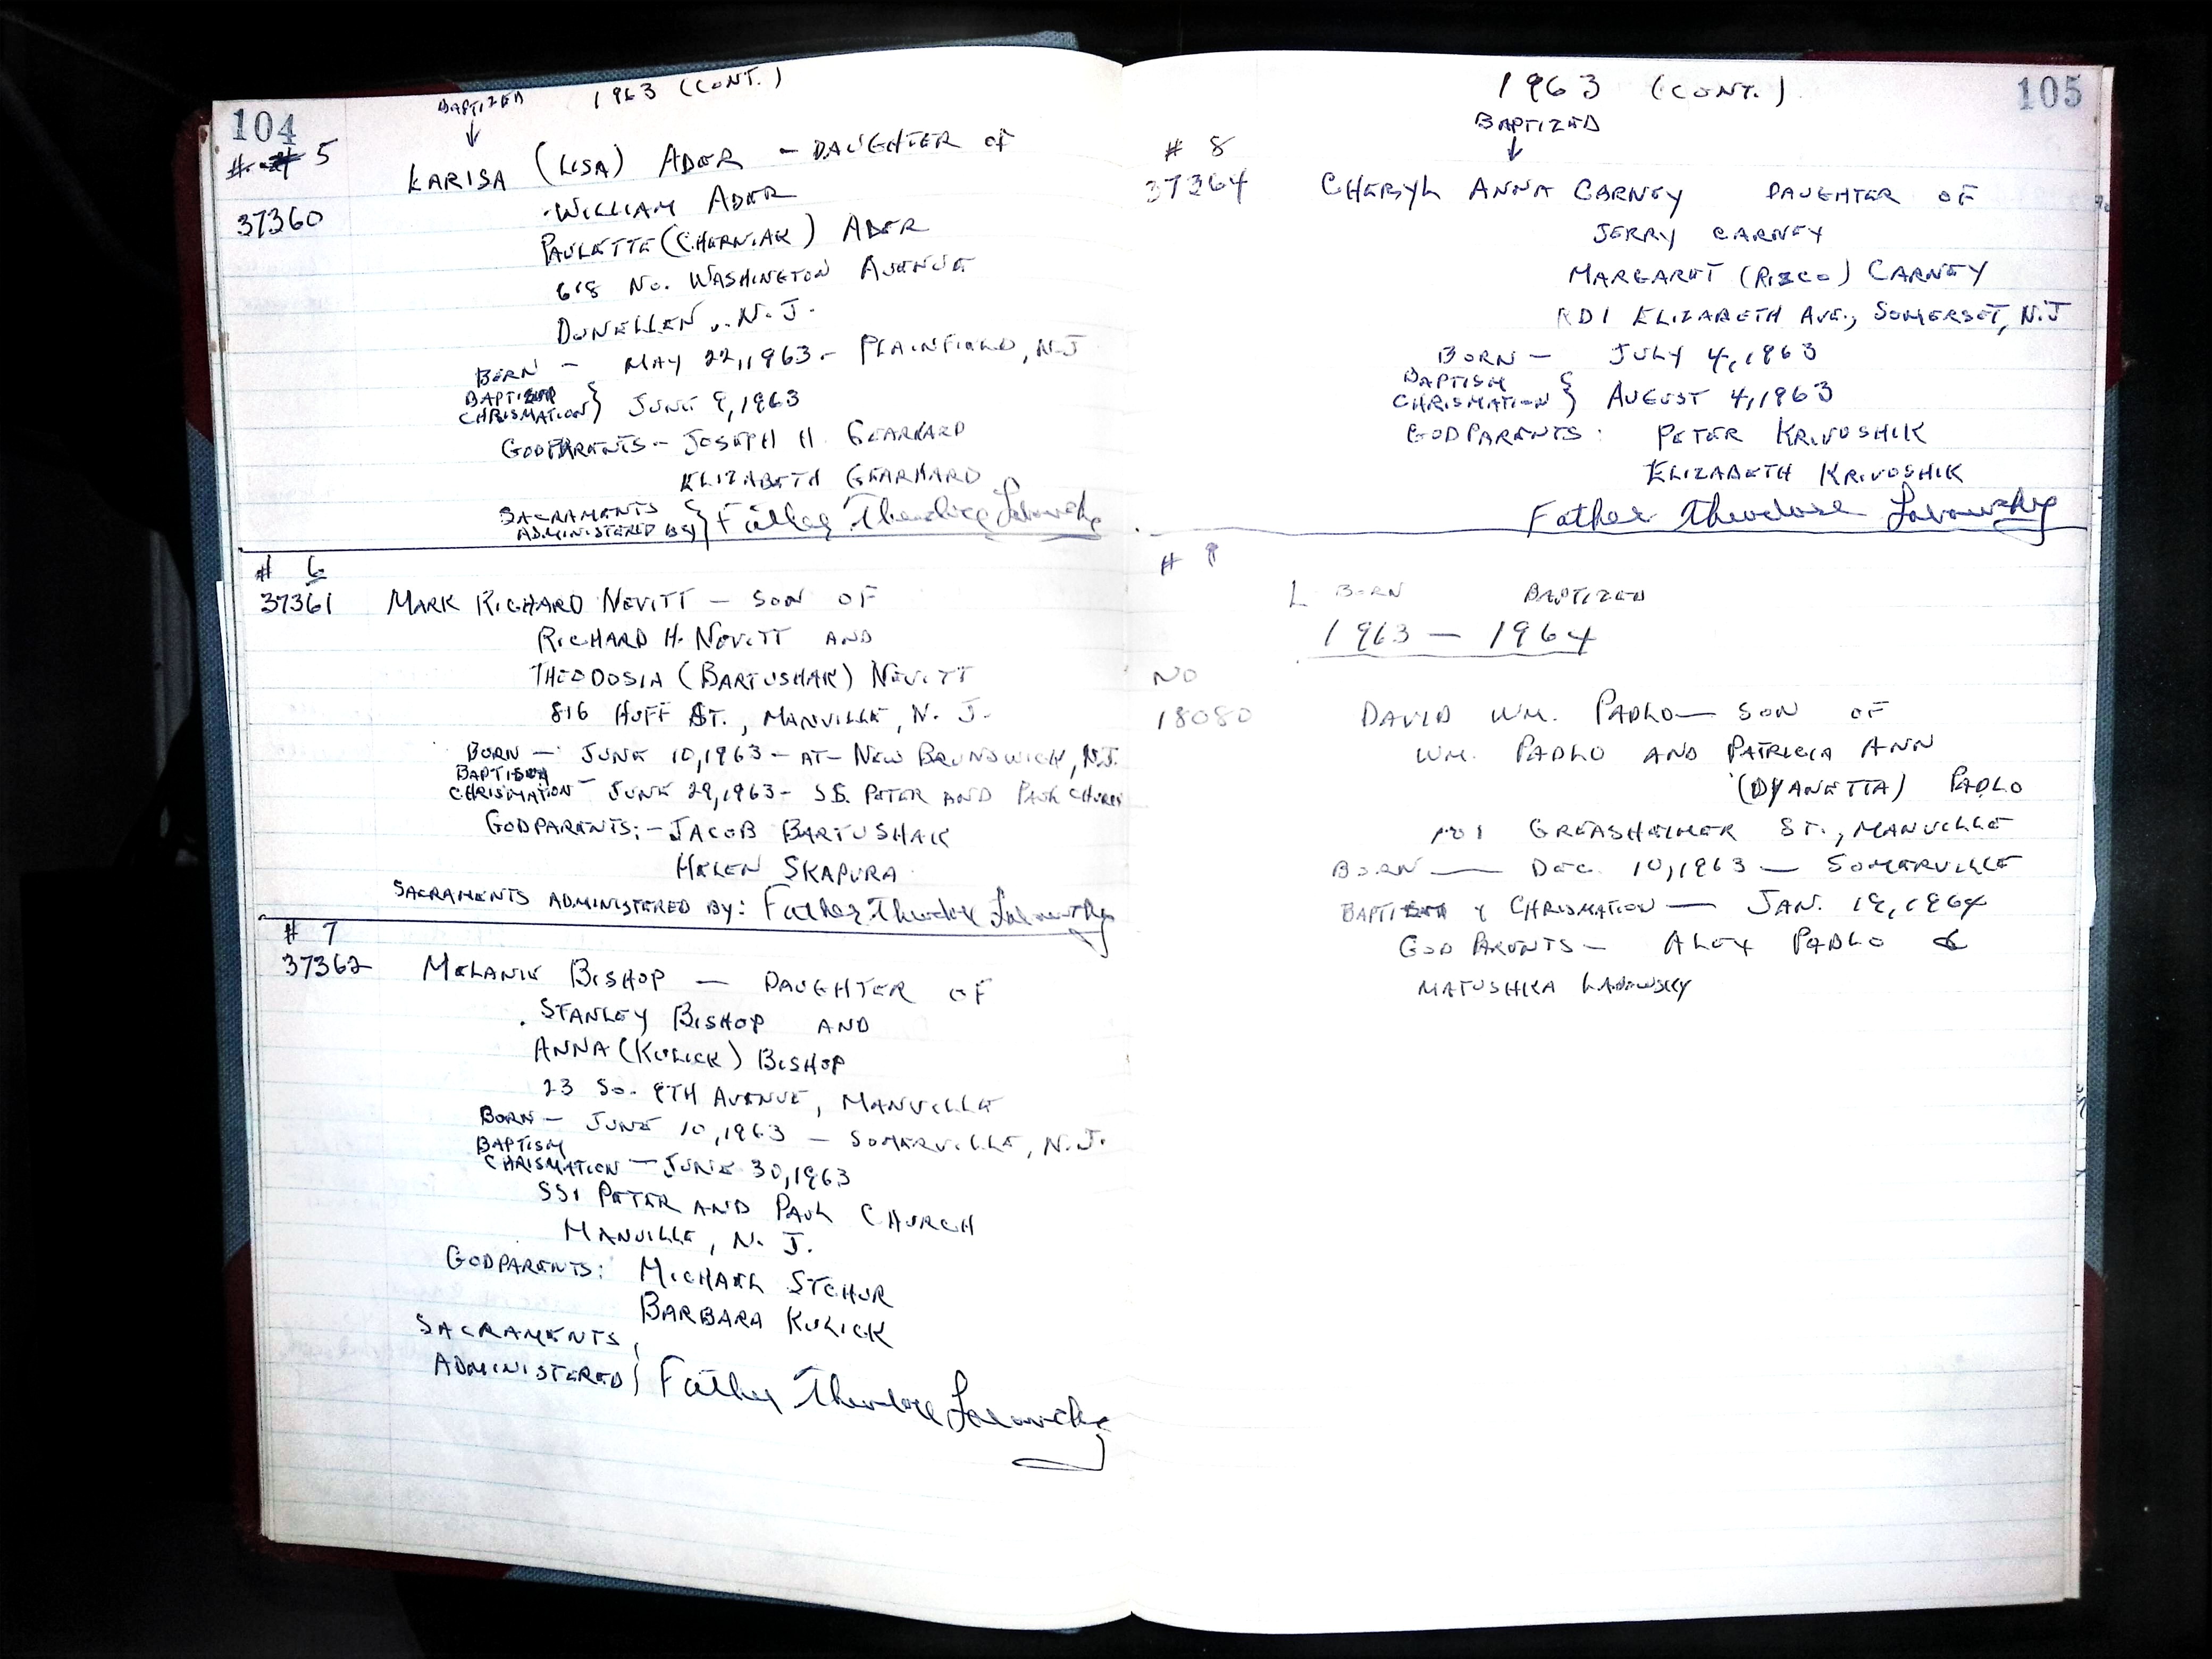 104
BAPTIZED 1963 (CONT.)
# 5
LARISA (LISA) ADER - DAUGHTER OF
37360
WILLIAM ADER
PAULETTE (CHERNIAK) ADER
618 NO. WASHINGTON AVENUE
DUNELLEN, N.J.
BORN - MAY 22, 1963 - PLAINFIELD, N.J
BAPTISM
CHRISMATION } JUNE 9, 1963
GODPARENTS - JOSEPH H. GEARHARD
ELIZABETH GEARHARD
SACRAMENTS
ADMINISTERED BY } Father Theodore Labowsky
# 6
37361 MARK RICHARD NEVITT - SON OF
RICHARD H. NEVITT AND
THEODOSIA (BARTUSHAK) NEVITT
816 HUFF ST., MANVILLE, N. J.
BORN - JUNE 10, 1963 - AT - NEW BRUNSWICK, N.J.
BAPTISM
CHRISMATION - JUNE 29, 1963 - SS. PETER AND PAUL CHURCH
GODPARENTS: - JACOB BARTUSHAK
HELEN SKAPURA
SACRAMENTS ADMINISTERED BY: Father Theodore Labowsky
# 7
37362 MELANIE BISHOP - DAUGHTER OF
STANLEY BISHOP AND
ANNA (KULICK) BISHOP
23 SO. 9TH AVENUE, MANVILLE
BORN - JUNE 10, 1963 - SOMERVILLE, N.J.
BAPTISM
CHRISMATION - JUNE 30, 1963
SS. PETER AND PAUL CHURCH
MANVILLE, N. J.
GODPARENTS: MICHAEL STCHUR
BARBARA KULICK
SACRAMENTS
ADMINISTERED } Father Theodore Labowsky
1963 (CONT.) 105
BAPTIZED
# 8
37364 CHERYL ANNA CARNEY DAUGHTER OF
JERRY CARNEY
MARGARET (RISCO) CARNEY
RD 1 ELIZABETH AVE., SOMERSET, N.J
BORN - JULY 4, 1963
BAPTISM
CHRISMATION } AUGUST 4, 1963
GODPARENTS: PETER KRIVOSHIK
ELIZABETH KRIVOSHIK
Father Theodore Labowsky
# 9
BORN BAPTIZED
1963 - 1964
NO
18080 DAVID WM. PADLO - SON OF
WM. PADLO AND PATRICIA ANN
(DYANETTA) PADLO
ST., MANVILLE
BORN - DEC. 10, 1963 - SOMERVILLE
BAPTISM & CHRISMATION - JAN. 19, 1964
GOD PARENTS - ALEX PADLO &
MATUSHKA LABOWSKY